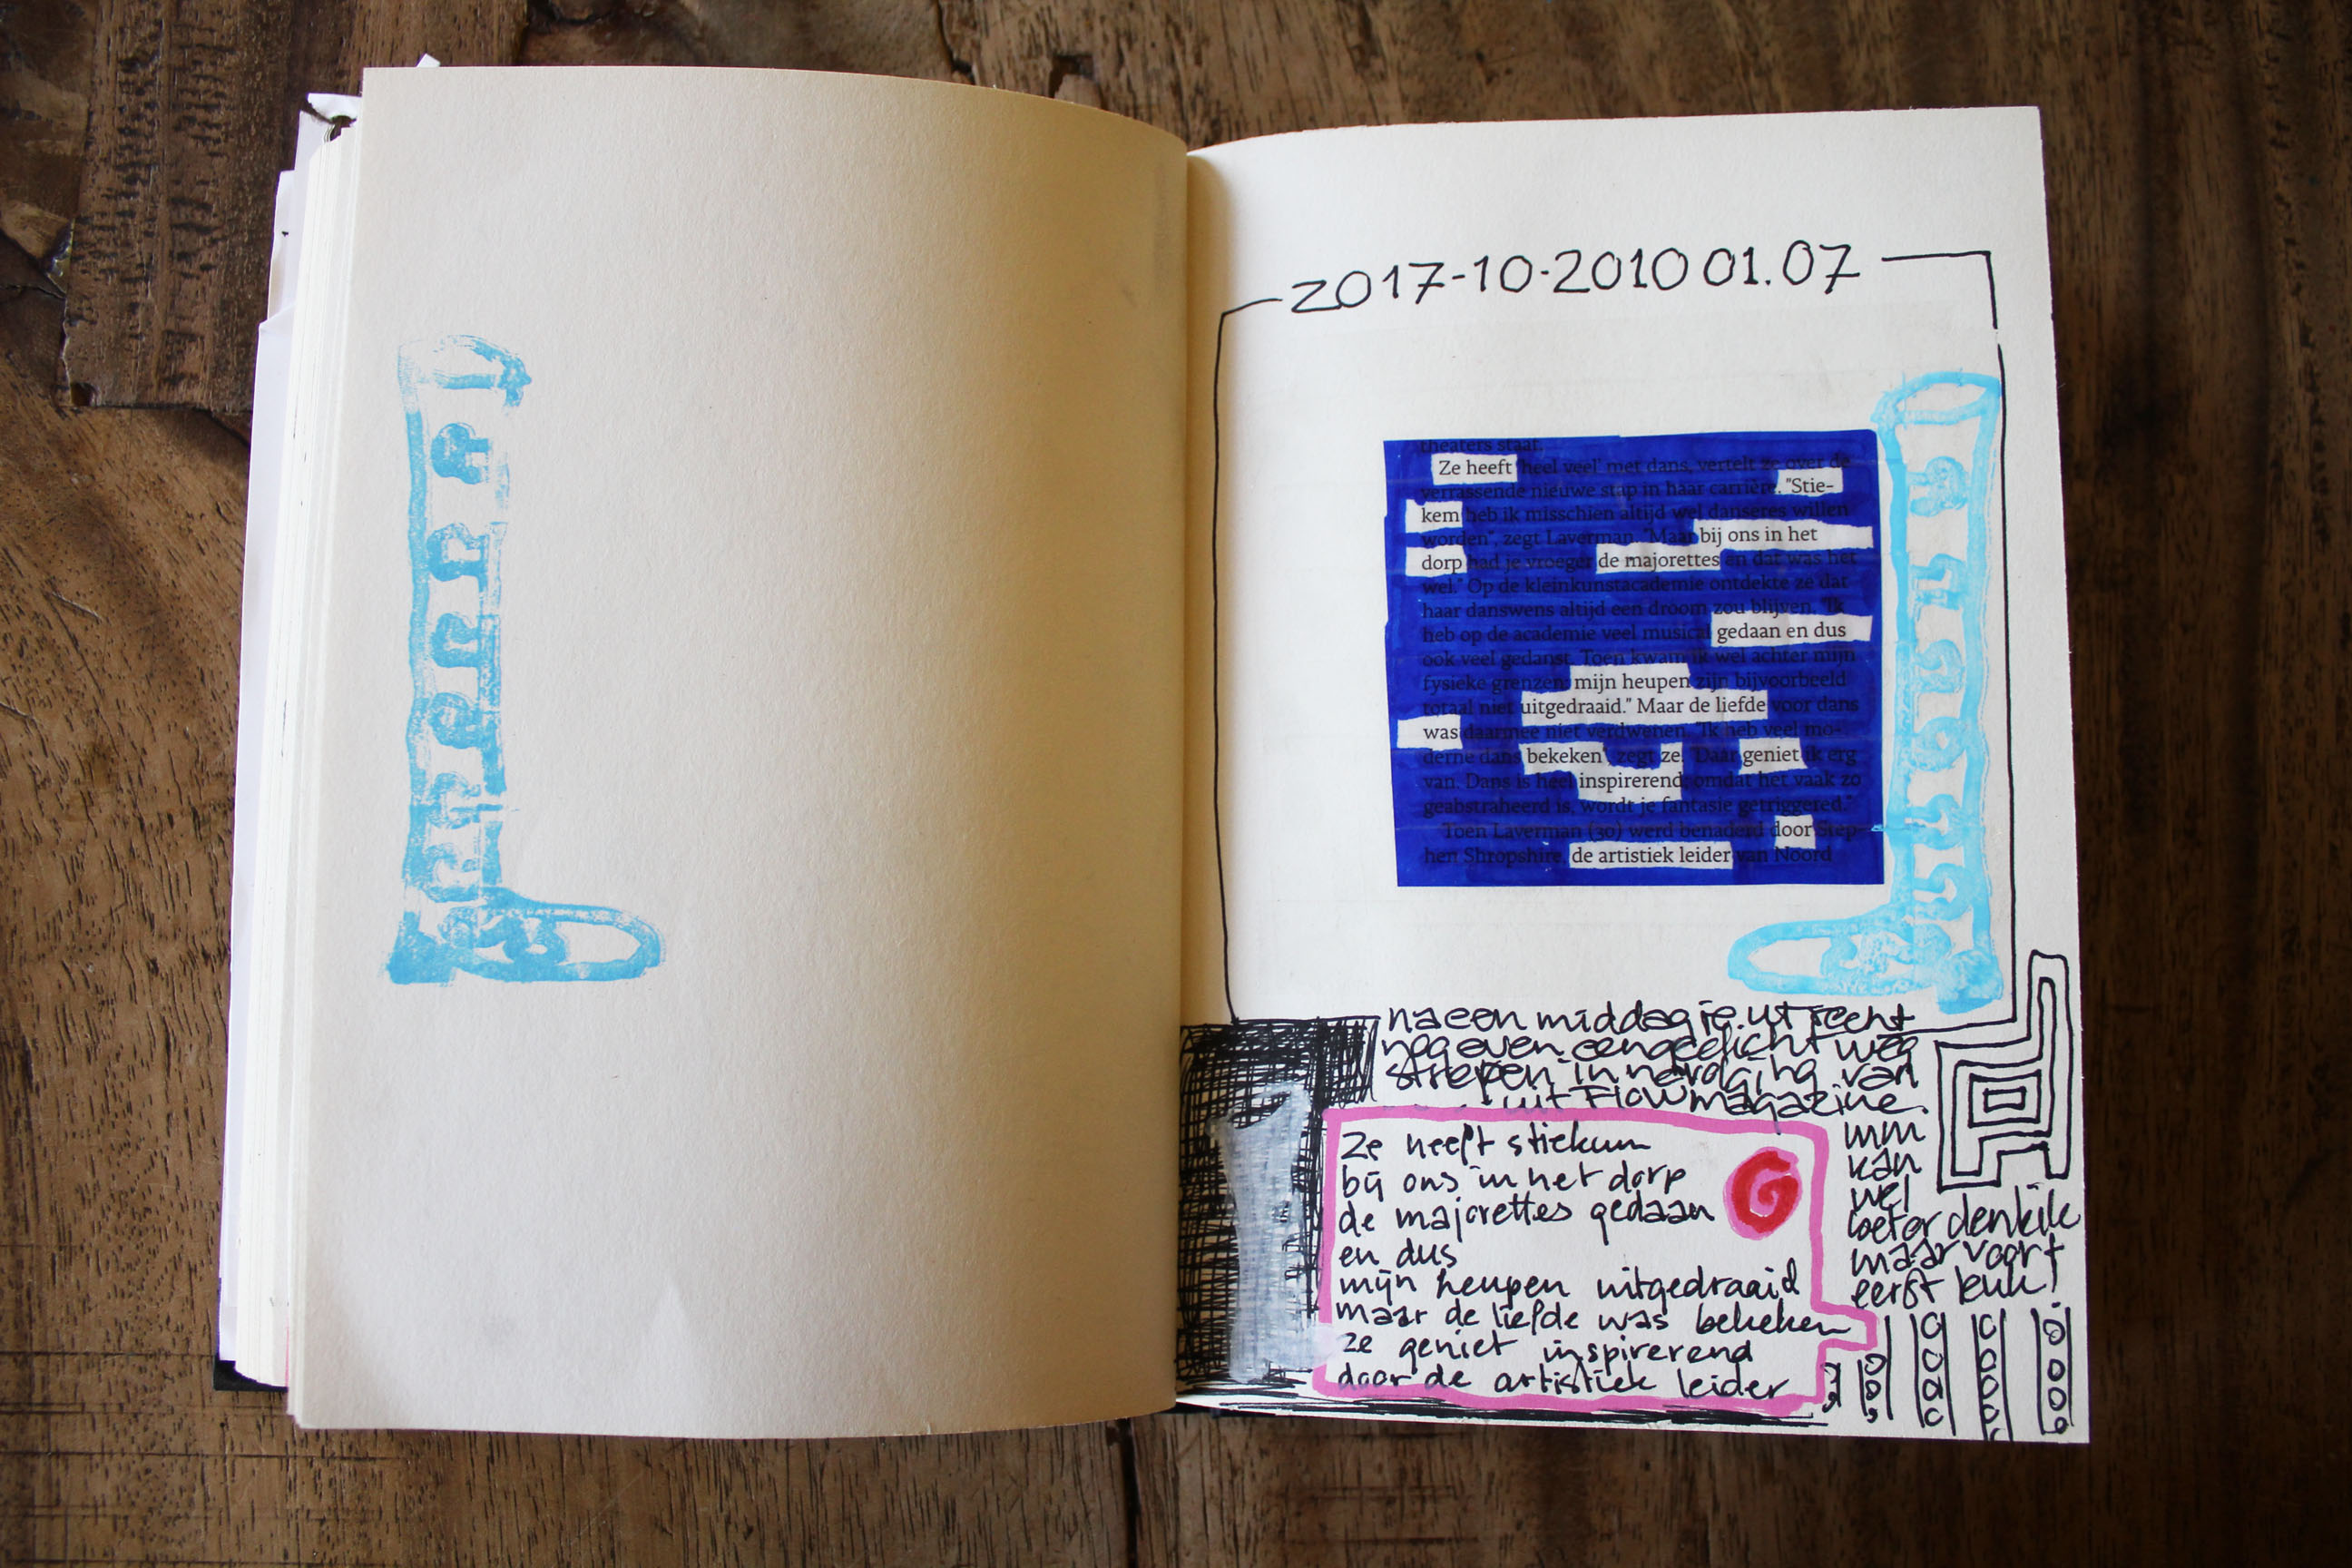 zo17-10-2010 01.07
theaters staat.
Ze heeft 'heel veel' met dans, vertelt ze over de
verrassende nieuwe stap in haar carrière. "Stie-
kem heb ik misschien altijd wel danseres willen
worden", zegt Laverman. "Maar bij ons in het
dorp had je vroeger de majorettes en dat was het
wel." Op de kleinkunstacademie ontdekte ze dat
haar danswens altijd een droom zou blijven. "Ik
heb op de academie veel musical gedaan en dus
ook veel gedanst. Toen kwam ik wel achter mijn
fysieke grenzen: mijn heupen zijn bijvoorbeeld
totaal niet uitgedraaid." Maar de liefde voor dans
was daarmee niet verdwenen. "Ik heb veel mo-
derne dans bekeken", zegt ze. "Daar geniet ik erg
van. Dans is heel inspirerend, omdat het vaak zo
geabstraheerd is, wordt je fantasie getriggered."
Toen Laverman (30) werd benaderd door Step-
hen Shropshire, de artistiek leider van Noord
na een middagje utrecht
nog even een gedicht weg
strepen in navolging van
uit Flow magazine.
mm
kan
wel
beter denk ik
maar voor t
eerst leuk!
Ze heeft stiekum
bij ons in het dorp
de majorettes gedaan
en dus
mijn heupen uitgedraaid
maar de liefde was bekeken
ze geniet inspirerend
door de artistiek leider